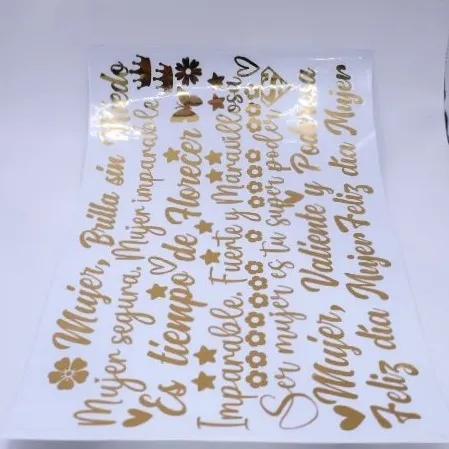 Mujer, Brilla sin Miedo
Mujer segura, Mujer imparable
Es tiempo de Florecer
Imparable, Fuerte y Maravillosa
Ser mujer es tu super poder
Mujer, Valiente y Poderosa
Feliz día Mujer Feliz día Mujer